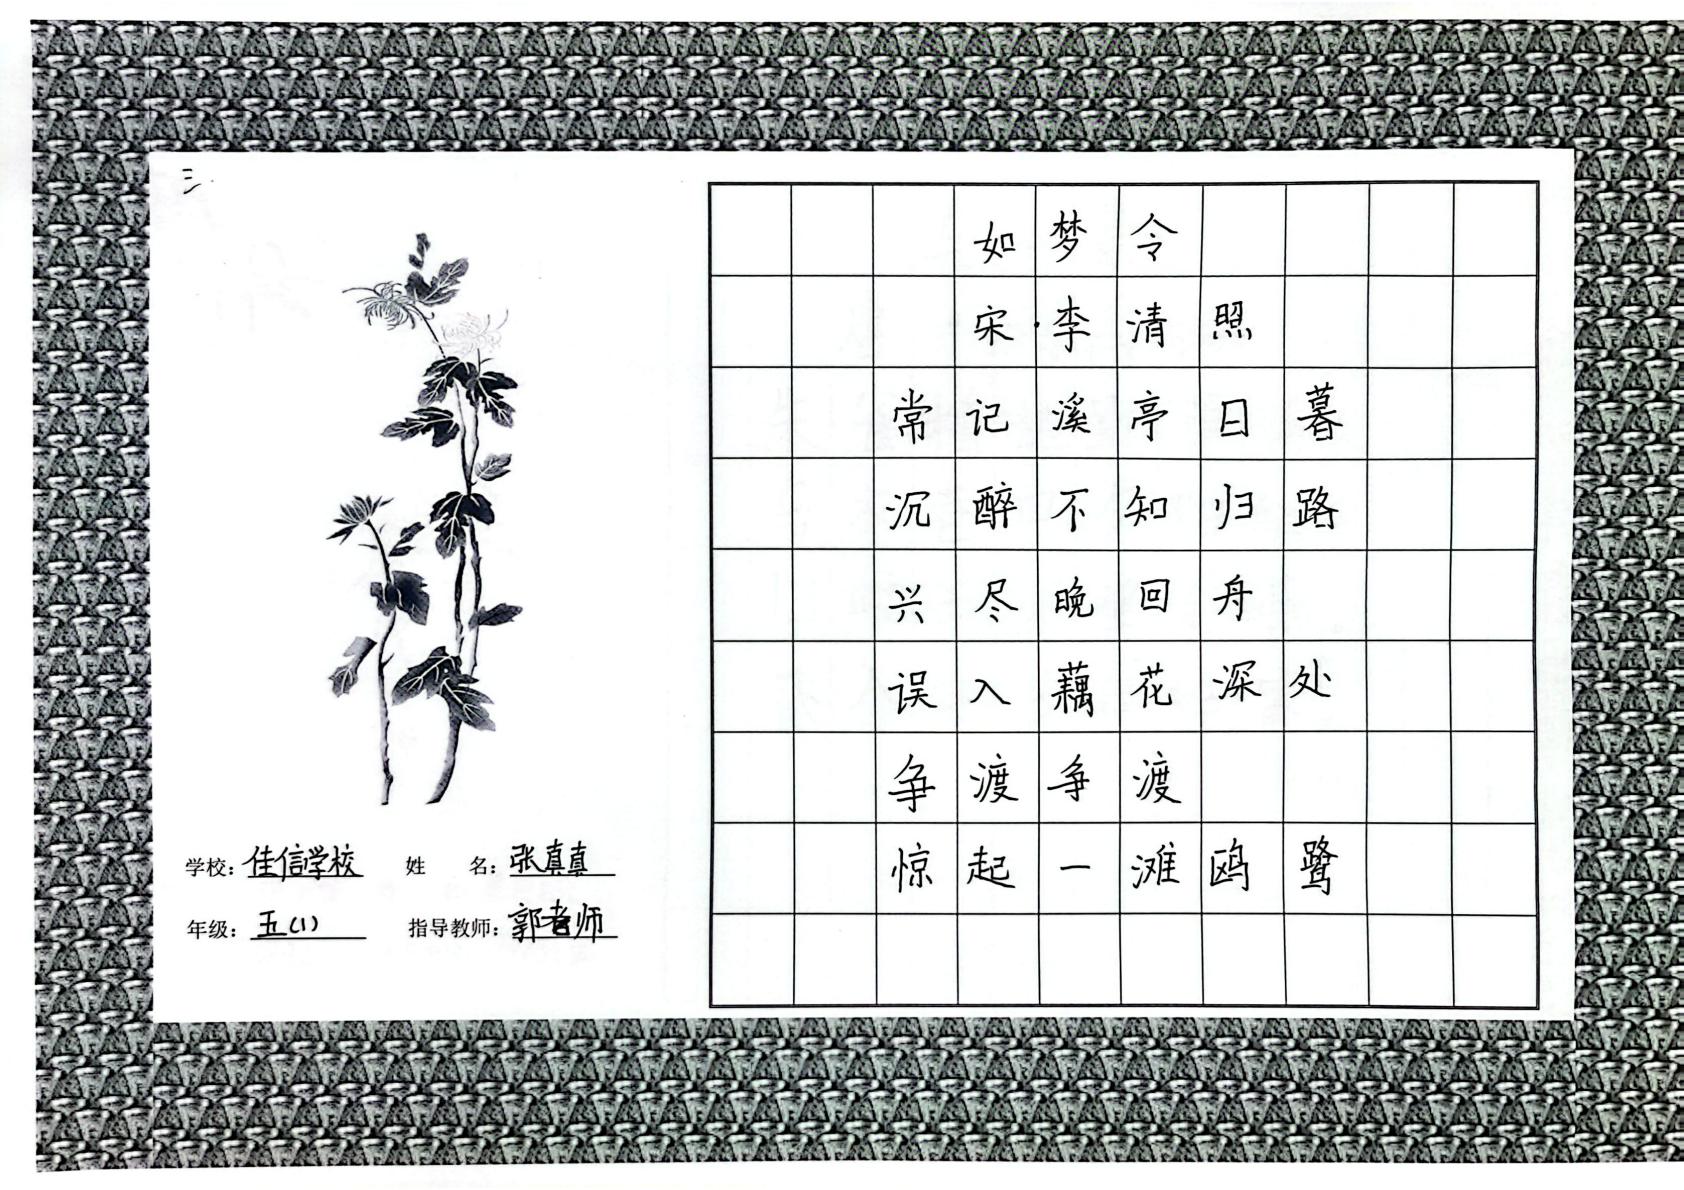 三.
如梦令
宋·李清照
常记溪亭日暮
沉醉不知归路
兴尽晚回舟
误入藕花深处
争渡争渡
惊起一滩鸥鹭
学校：佳信学校 姓 名：张真真
年级：五(1) 指导教师：郭老师